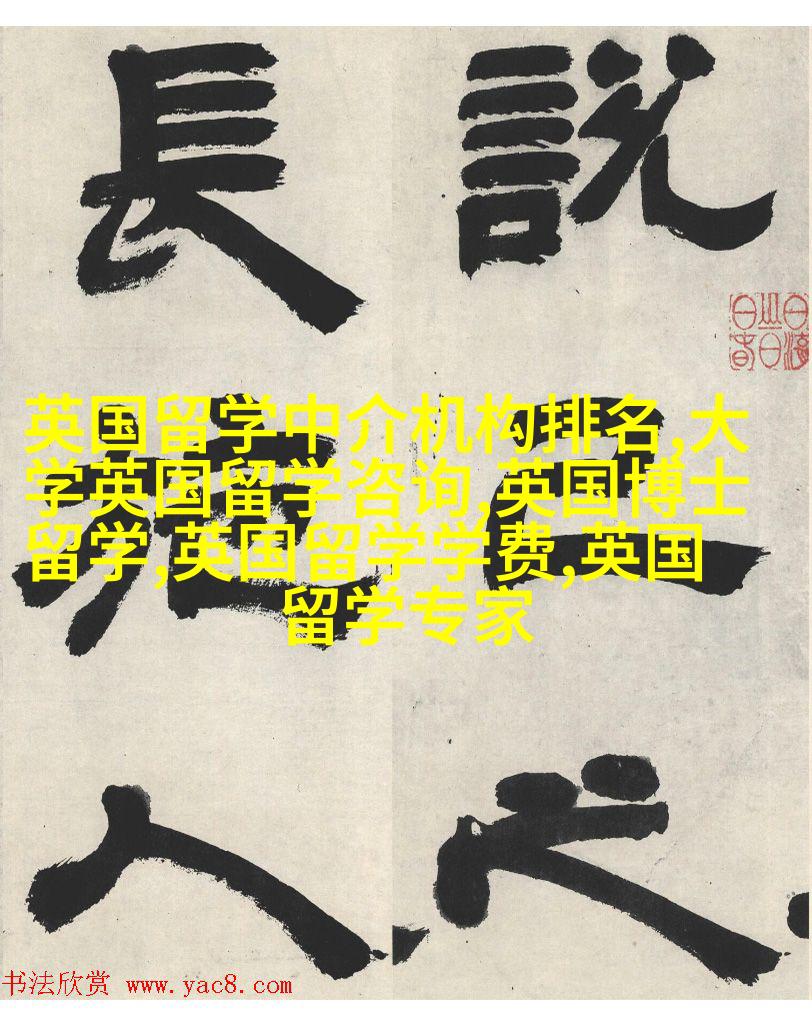 說己之
長施人
英国留学中介机构排名,大
学英国留学咨询,英国博士
留学,英国留学学费,英国
留学专家
书法欣赏 www.yac8.com